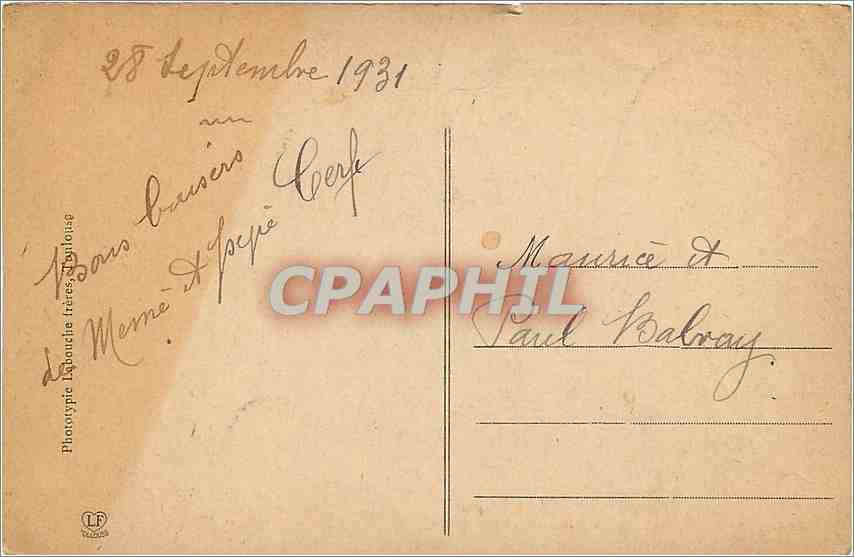 28 Septembre 1931
Bons baisers
de Memé et pepé Cerf
Maurice et
Paul Balvay
CPAPHIL
Phototypie Labouche frères, Toulouse
LF
TOULOUSE